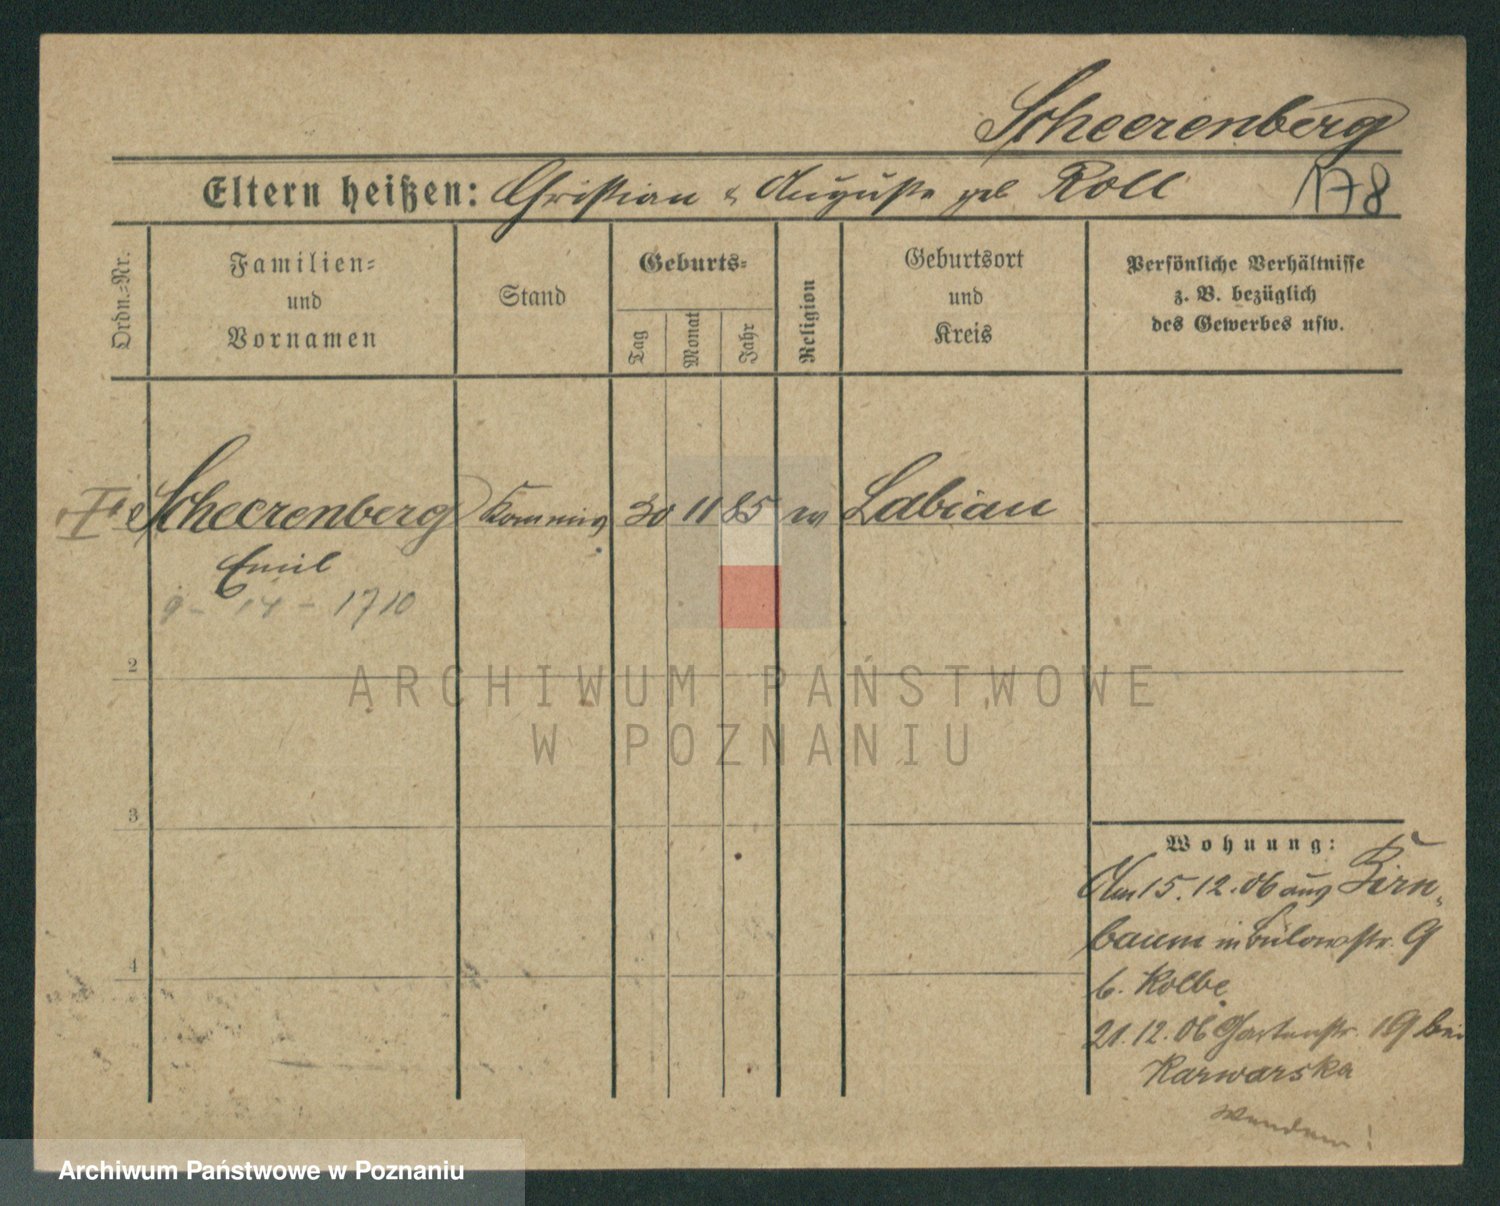 Scheerenberg
Eltern heißen: Christian & Auguste geb Roll 178
Ordn.-Nr.
Familien- und Vornamen
Stand
Geburts-
Tag
Monat
Jahr
Religion
Geburtsort und Kreis
Persönliche Verhältnisse
z. B. bezüglich
des Gewerbes usw.
Scheerenberg 30 11 85 ev Labiau
Emil
9 - 14 - 1710
2
ARCHIWUM PAŃSTWOWE
W POZNANIU
3
Wohnung:
Am 15.12.06 aus Birn-
baum in Bülowstr. 9
b. Kolbe
21.12.06 Gartenstr. 19 bei
Karwarska
Wenden!
4
Archiwum Państwowe w Poznaniu